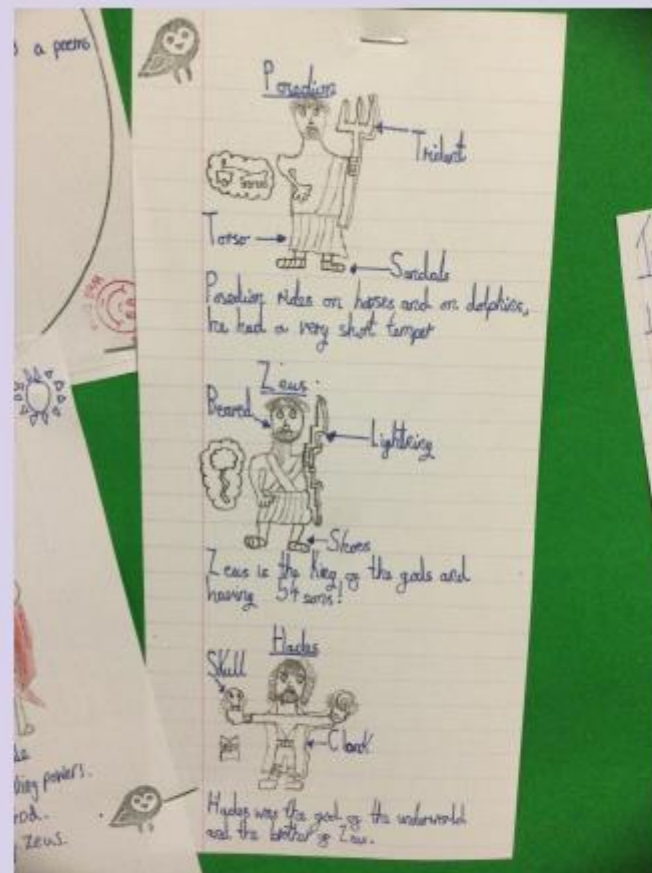 a poems
Posedion
Trident
Torso
Sandals
Posedion rides on horses and on dolphins,
he had a very short temper
Zeus
Beared
Lightning
Shoes
Zeus is the King of the gods and
having 54 sons!
Hades
Skull
Cloak
Hades was the god of the underworld
and the brother of Zeus.
powers.
Zeus.